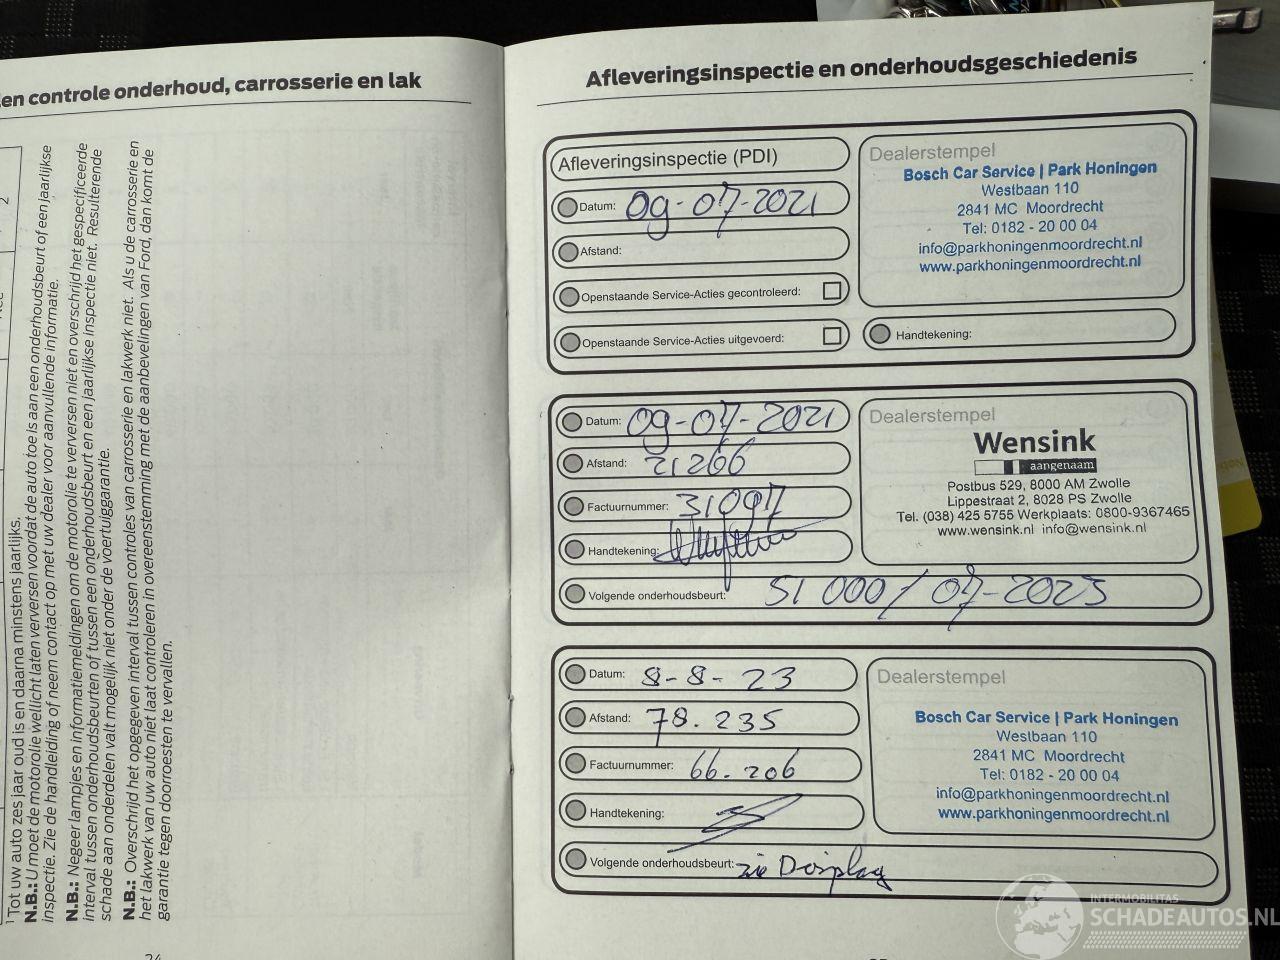 en controle onderhoud, carrosserie en lak
2
¹ Tot uw auto zes jaar oud is en daarna minstens jaarlijks.
N.B.: U moet de motorolie wellicht laten verversen voordat de auto toe is aan een onderhoudsbeurt of een jaarlijkse
inspectie. Zie de handleiding of neem contact op met uw dealer voor aanvullende informatie.
N.B.: Negeer lampjes en informatiemeldingen om de motorolie te verversen niet en overschrijd het gespecificeerde
interval tussen onderhoudsbeurten of tussen een onderhoudsbeurt en een jaarlijkse inspectie niet. Resulterende
schade aan onderdelen valt mogelijk niet onder de voertuiggarantie.
N.B.: Overschrijd het opgegeven interval tussen controles van carrosserie en lakwerk niet. Als u de carrosserie en
het lakwerk van uw auto niet laat controleren in overeenstemming met de aanbevelingen van Ford, dan komt de
garantie tegen doorroesten te vervallen.
24
Afleveringsinspectie en onderhoudsgeschiedenis
Afleveringsinspectie (PDI)
Datum: 09-07-2021
Afstand:
Openstaande Service-Acties gecontroleerd:
Openstaande Service-Acties uitgevoerd:
Dealerstempel
Bosch Car Service | Park Honingen
Westbaan 110
2841 MC Moordrecht
Tel: 0182 - 20 00 04
info@parkhoningenmoordrecht.nl
www.parkhoningenmoordrecht.nl
Handtekening:
Datum: 09-07-2021
Afstand: 21266
Factuurnummer: 31097
Handtekening:
Dealerstempel
Wensink
aangenaam
Postbus 529, 8000 AM Zwolle
Lippestraat 2, 8028 PS Zwolle
Tel. (038) 425 5755 Werkplaats: 0800-9367465
www.wensink.nl info@wensink.nl
Volgende onderhoudsbeurt: 51 000 / 07-2023
Datum: 8-8-23
Afstand: 78.235
Factuurnummer: 66.206
Handtekening:
Dealerstempel
Bosch Car Service | Park Honingen
Westbaan 110
2841 MC Moordrecht
Tel: 0182 - 20 00 04
info@parkhoningenmoordrecht.nl
www.parkhoningenmoordrecht.nl
Volgende onderhoudsbeurt: zie Display
INTERMOBILITAS
SCHADEAUTOS.NL